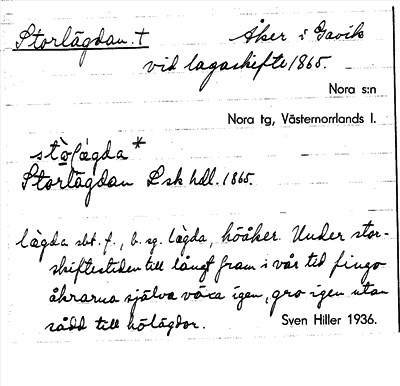 Storlägdan. † Åker i Gavik
vid lagaskifte 1865.
Nora s:n
Nora tg, Västernorrlands l.
stò̱lägda *
Storlägdan Lsk hdl. 1865.
lägda sbt. f., b. sg. lägda, höåker. Under stor-
skiftestiden till långt fram i vår tid fingo
åkrarna själva växa igen, gro igen utan
sådd till hölägdor.
Sven Hiller 1936.